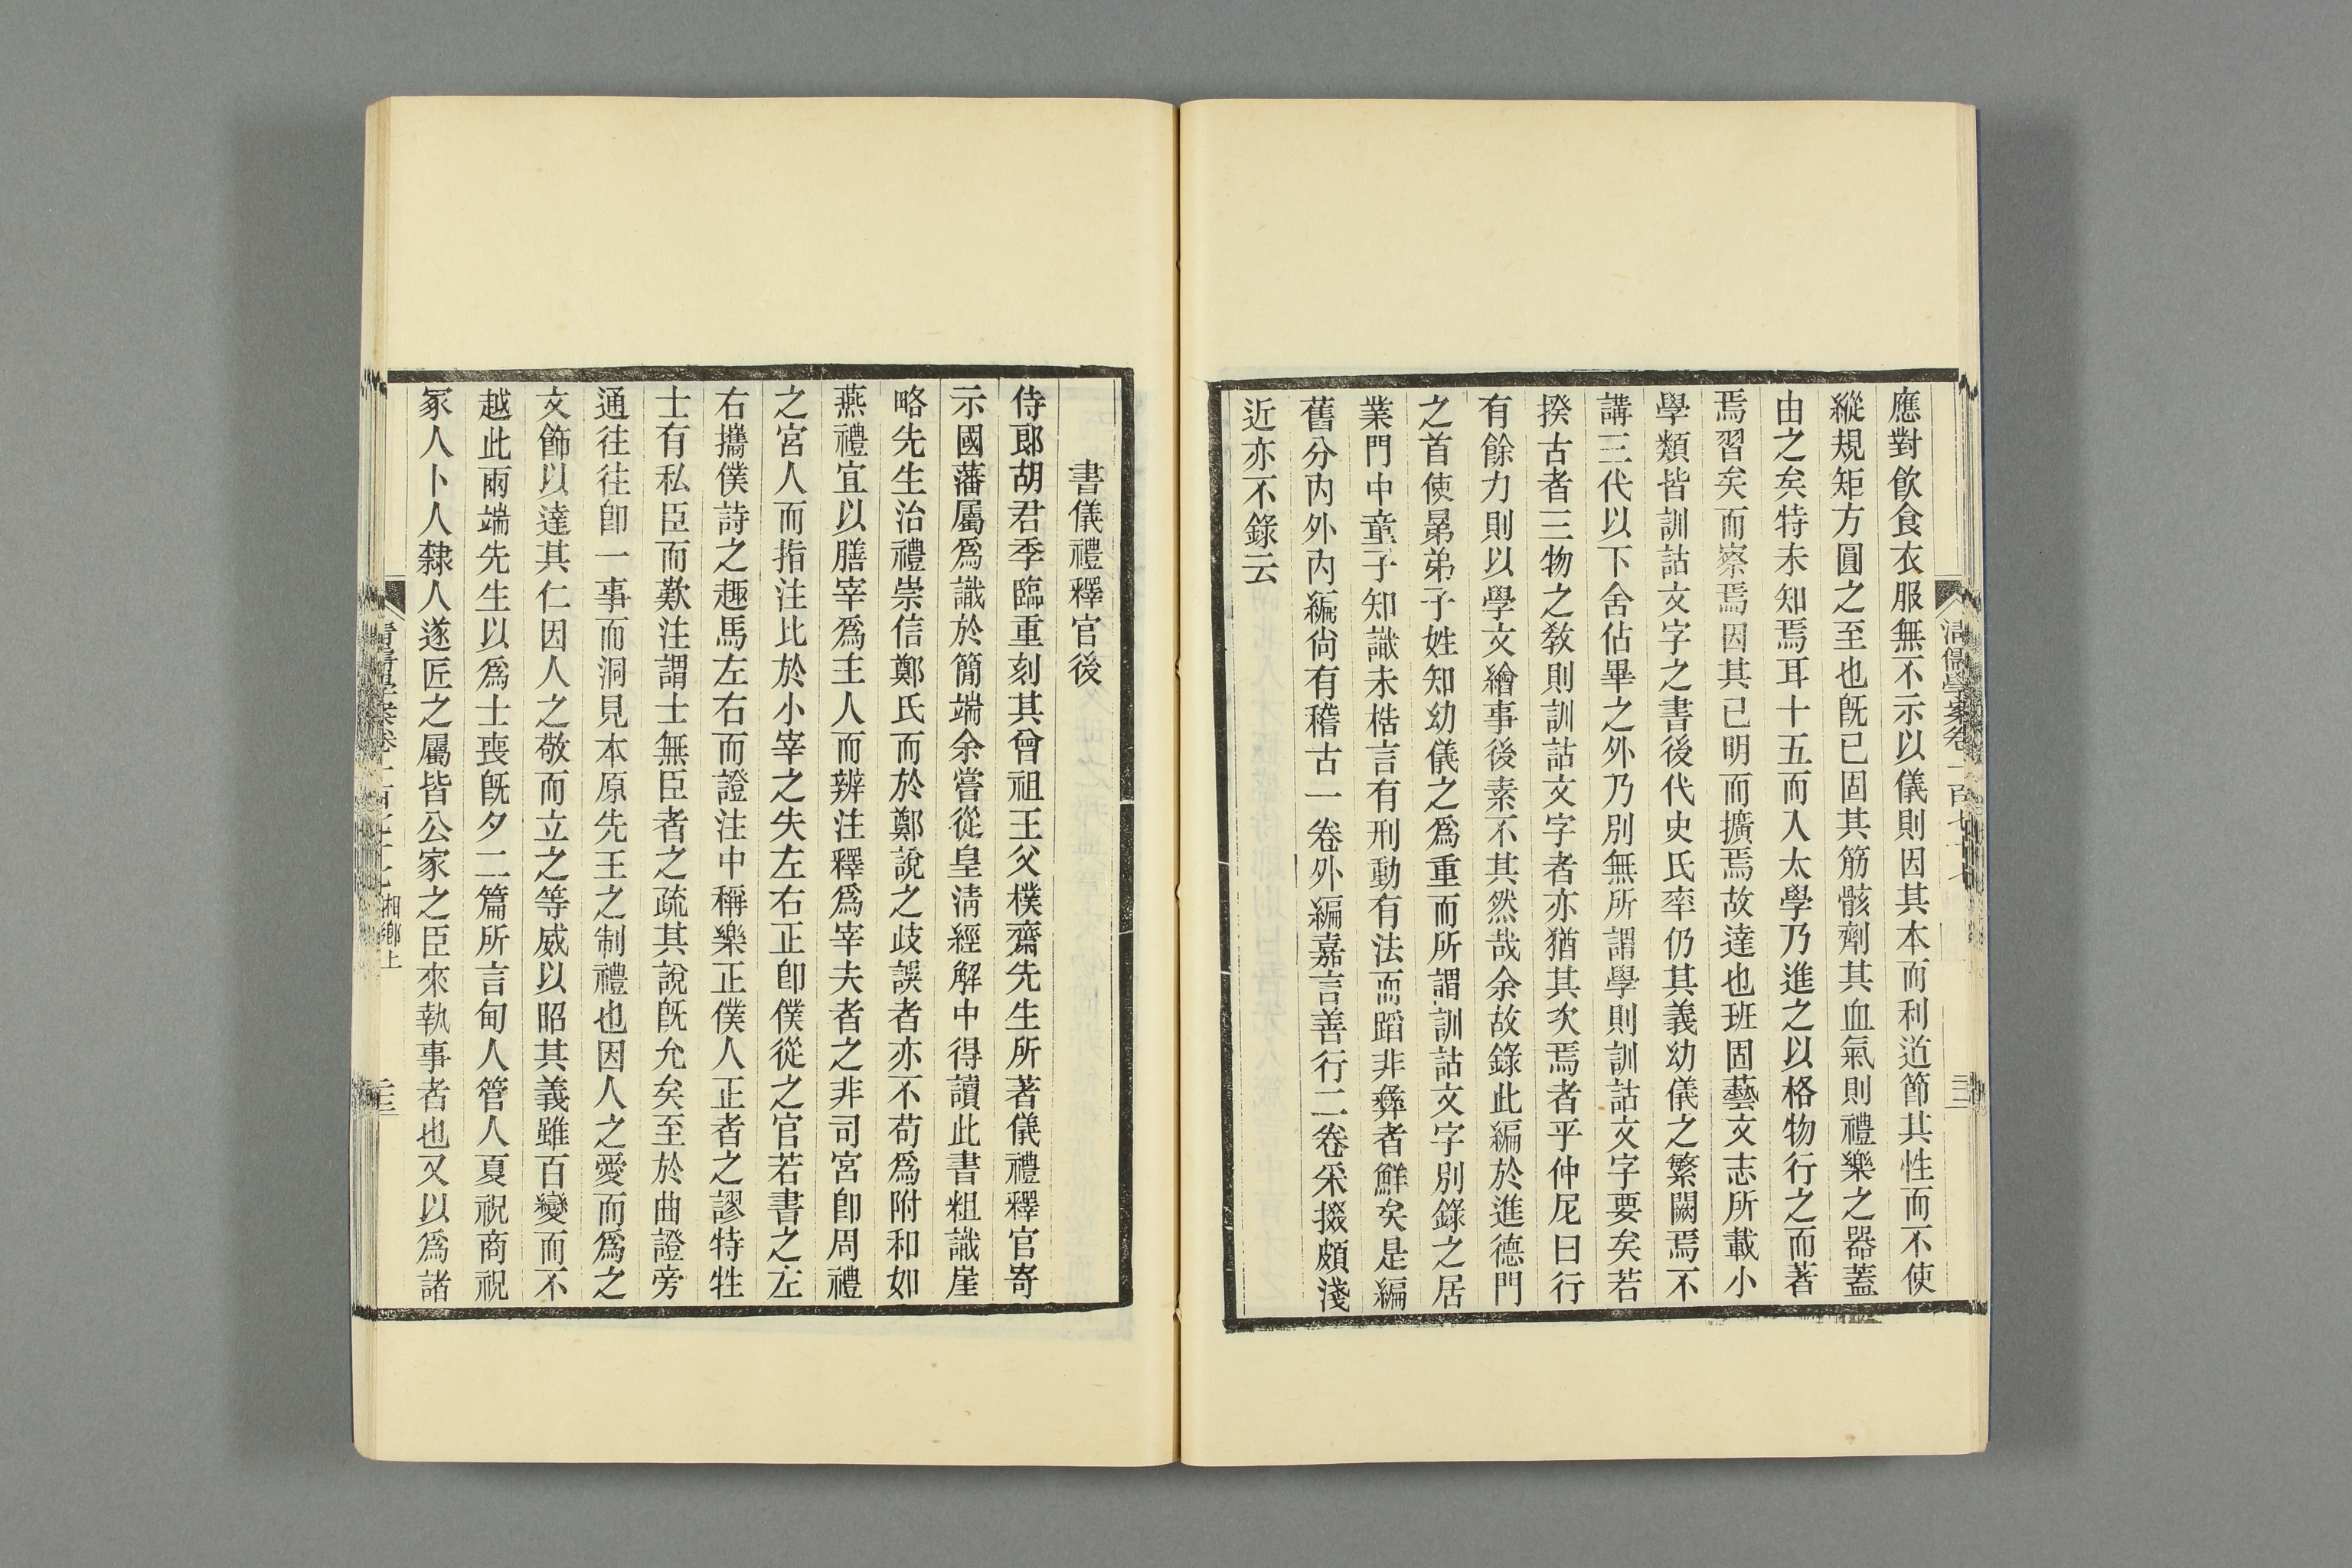 應對飮食衣服無不示以儀則因其本而利道節其性而不使
縱規矩方圓之至也旣已固其筋骸劑其血氣則禮樂之器蓋
由之矣特未知焉耳十五而入太學乃進之以格物行之而著
焉習矣而察焉因其已明而擴焉故達也班固藝文志所載小
學類皆訓詁文字之書後代史氏率仍其義幼儀之繁闕焉不
講三代以下舍佔畢之外乃別無所謂學則訓詁文字要矣若
揆古者三物之敎則訓詁文字者亦猶其次焉者乎仲尼曰行
有餘力則以學文繪事後素不其然哉余故錄此編於進德門
之首使曡弟子姓知幼儀之爲重而所謂訓詁文字別錄之居
業門中童子知識未梏言有刑動有法而蹈非彝者鮮矣是編
舊分內外內編尙有稽古一卷外編嘉言善行二卷采掇頗淺
近亦不錄云
書儀禮釋官後
侍郎胡君季臨重刻其曾祖王父樸齋先生所著儀禮釋官寄
示國藩屬爲識於簡端余嘗從皇淸經解中得讀此書粗識崖
略先生治禮崇信鄭氏而於鄭說之歧誤者亦不苟爲附和如
燕禮宜以膳宰爲主人而辨注釋爲宰夫者之非司宮卽周禮
之宮人而指注比於小宰之失左右正卽僕從之官若書之左
右攜僕詩之趣馬左右而證注中稱樂正僕人正者之謬特牲
士有私臣而歎注謂士無臣者之疏其說旣允矣至於曲證旁
通往往卽一事而洞見本原先王之制禮也因人之愛而爲之
文飾以達其仁因人之敬而立之等威以昭其義雖百變而不
越此兩端先生以爲士喪旣夕二篇所言甸人管人夏祝商祝
冢人卜人隸人遂匠之屬皆公家之臣來執事者也又以爲諸